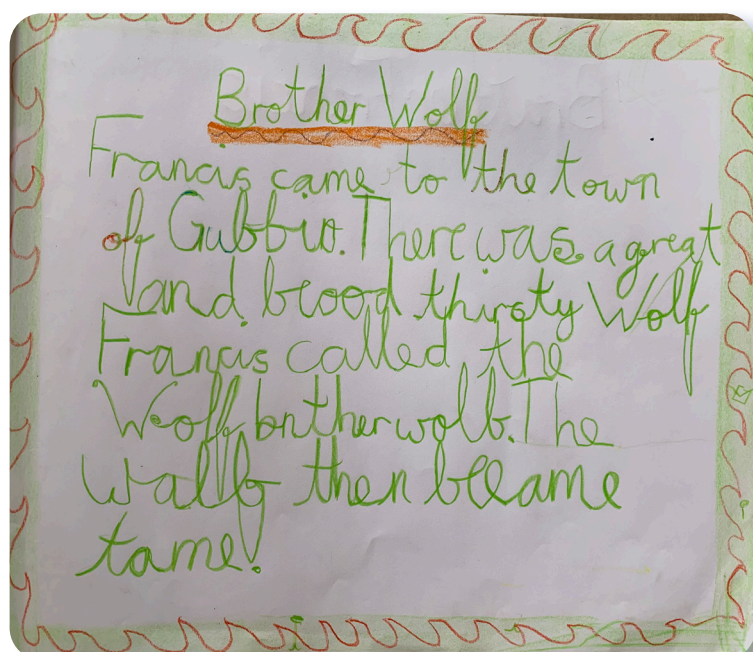 Brother Wolf
Francis came to the town
of Gubbio. There was a great
and blood thirsty Wolf
Francis called the
Wolf brother wolb. The
wallf then became
tame.